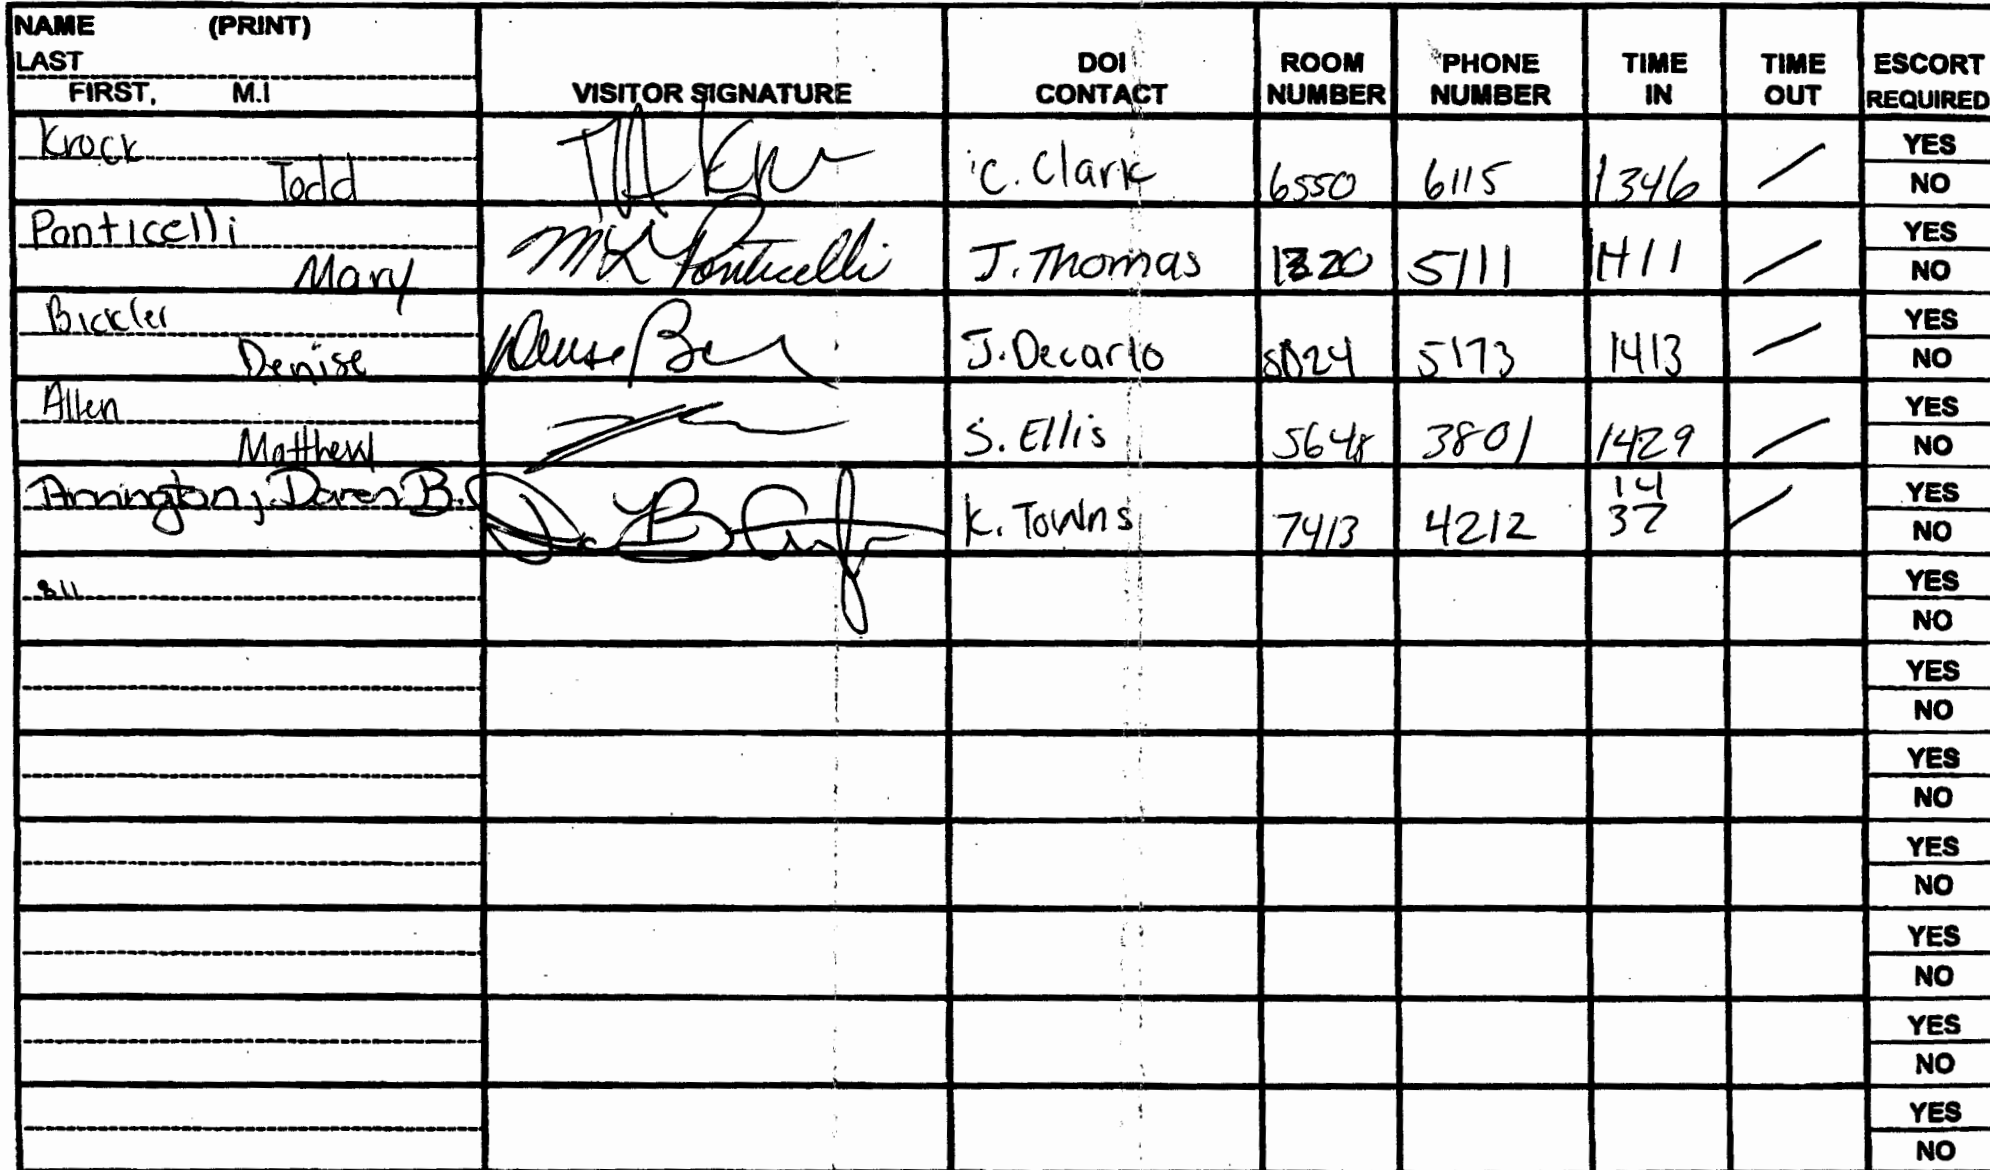 NAME (PRINT)
LAST
FIRST, M.I VISITOR SIGNATURE DOI CONTACT ROOM NUMBER PHONE NUMBER TIME IN TIME OUT ESCORT REQUIRED
Krock
Todd C. Clark 6550 6115 1346 / YES NO
Ponticelli
Mary ML Ponticelli J. Thomas 1320 5111 1411 / YES NO
Bickler
Denise Denise J. Decarlo 5173 1413 / YES NO
Allen
Matthew S. Ellis 5648 3801 1429 / YES NO
Arrington, Daren B. K. Towns 7413 4212 14 37 / YES NO
YES NO
YES NO
YES NO
YES NO
YES NO
YES NO
YES NO